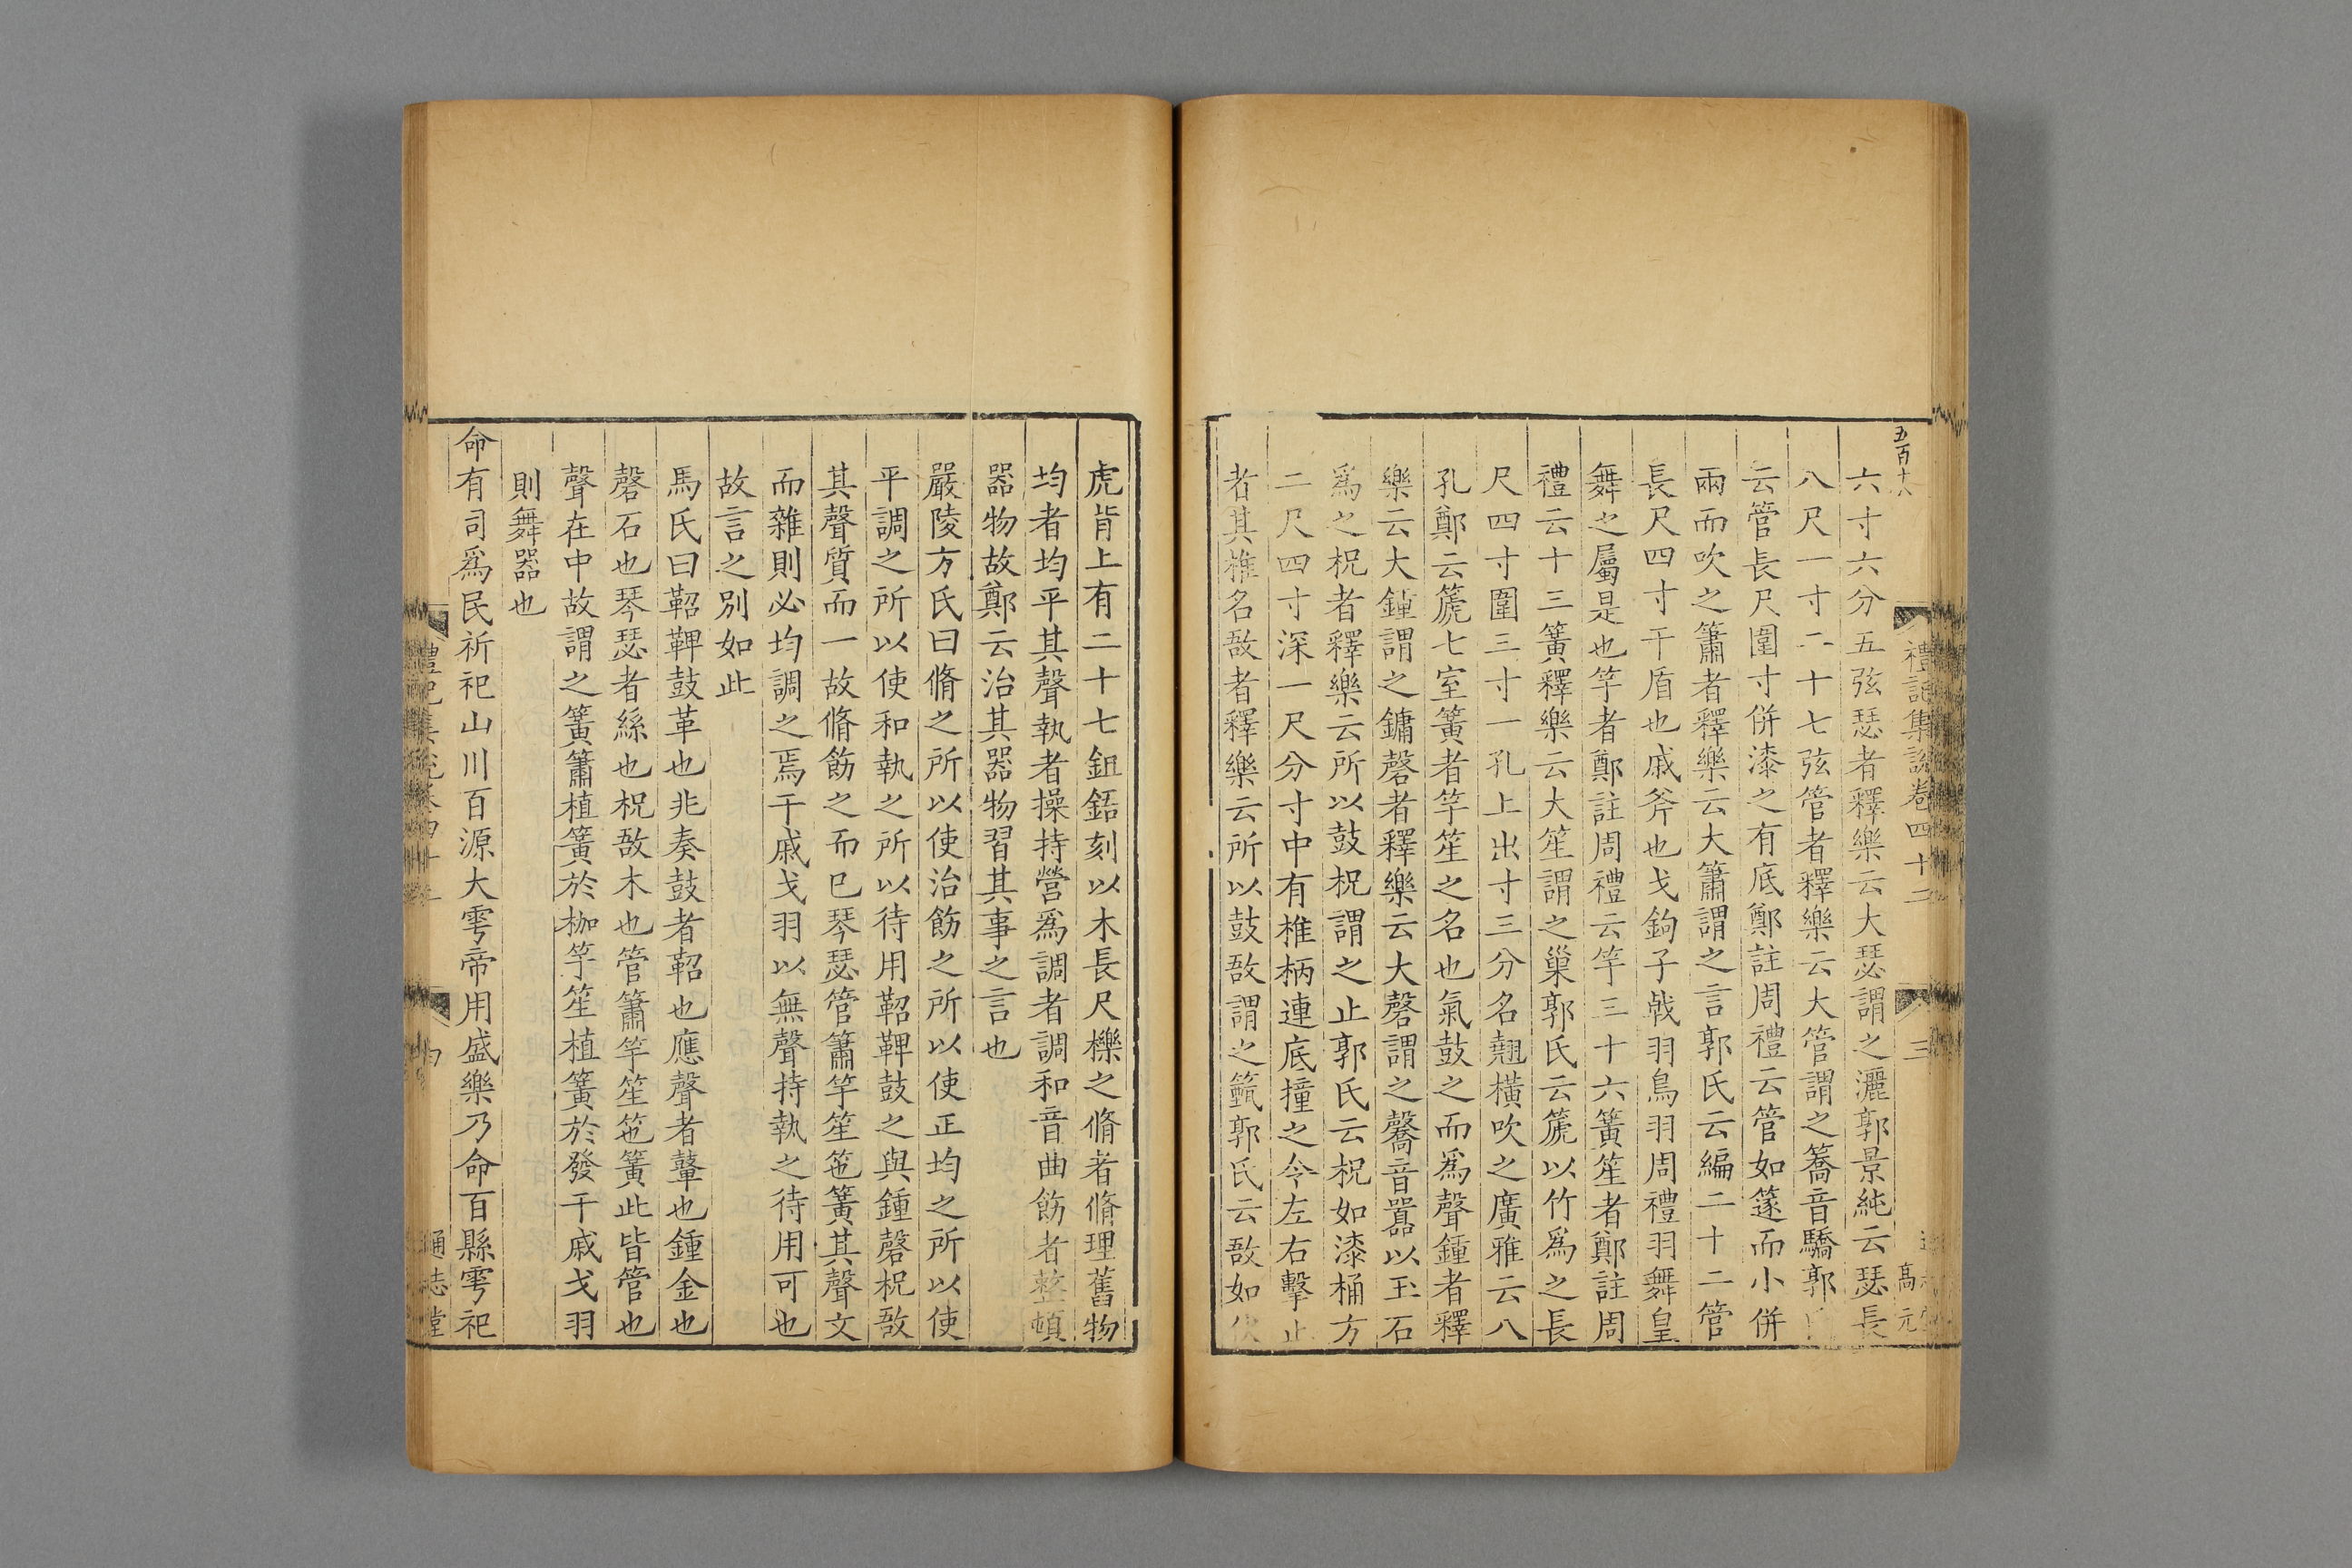 五百十八
禮記集說卷四十二
三
高元
六寸六分五弦瑟者釋樂云大瑟謂之灑郭景純云瑟長
八尺一寸二十七弦管者釋樂云大管謂之簥音驕郭
云管長尺圍寸併漆之有底鄭註周禮云管如篴而小併
兩而吹之簫者釋樂云大簫謂之言郭氏云編二十二管
長尺四寸干盾也戚斧也戈鉤孑戟羽鳥羽周禮羽舞皇
舞之屬是也竽者鄭註周禮云竽三十六簧笙者鄭註周
禮云十三簧釋樂云大笙謂之巢郭氏云篪以竹爲之長
尺四寸圍三寸一孔上出寸三分名翹橫吹之廣雅云八
孔鄭云篪七室簧者竽笙之名也氣鼓之而爲聲鍾者釋
樂云大鍾謂之鏞磬者釋樂云大磬謂之毊音嚻以玉石
爲之柷者釋樂云所以鼓柷謂之止郭氏云柷如漆桶方
二尺四寸深一尺分寸中有椎柄連底撞之令左右擊止
者其椎名敔者釋樂云所以鼓敔謂之籈郭氏云敔如伏
虎背上有二十七鉏鋙刻以木長尺櫟之脩者脩理舊物
均者均平其聲執者操持營爲調者調和音曲飭者整頓
器物故鄭云治其器物習其事之言也
嚴陵方氏曰脩之所以使治飭之所以使正均之所以使
平調之所以使和執之所以待用鞀鞞鼓之與鍾磬柷敔
其聲質而一故脩飭之而已琴瑟管簫竽笙竾簧其聲文
而雜則必均調之焉干戚戈羽以無聲持執之待用可也
故言之別如此
馬氏曰鞀鞞鼓革也兆奏鼓者鞀也應聲者鼙也鍾金也
磬石也琴瑟者絲也柷敔木也管簫竽笙竾簧此皆管也
聲在中故謂之簧簫植簧於枷竽笙植簧於發干戚戈羽
則舞器也
命有司爲民祈祀山川百源大雩帝用盛樂乃命百縣雩祀
禮記集說卷四十二
四
通志堂